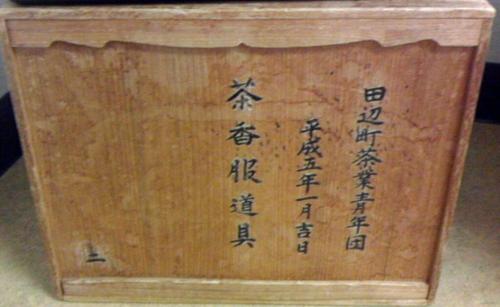 田辺町茶業青年団
平成五年一月吉日
茶香服道具
二